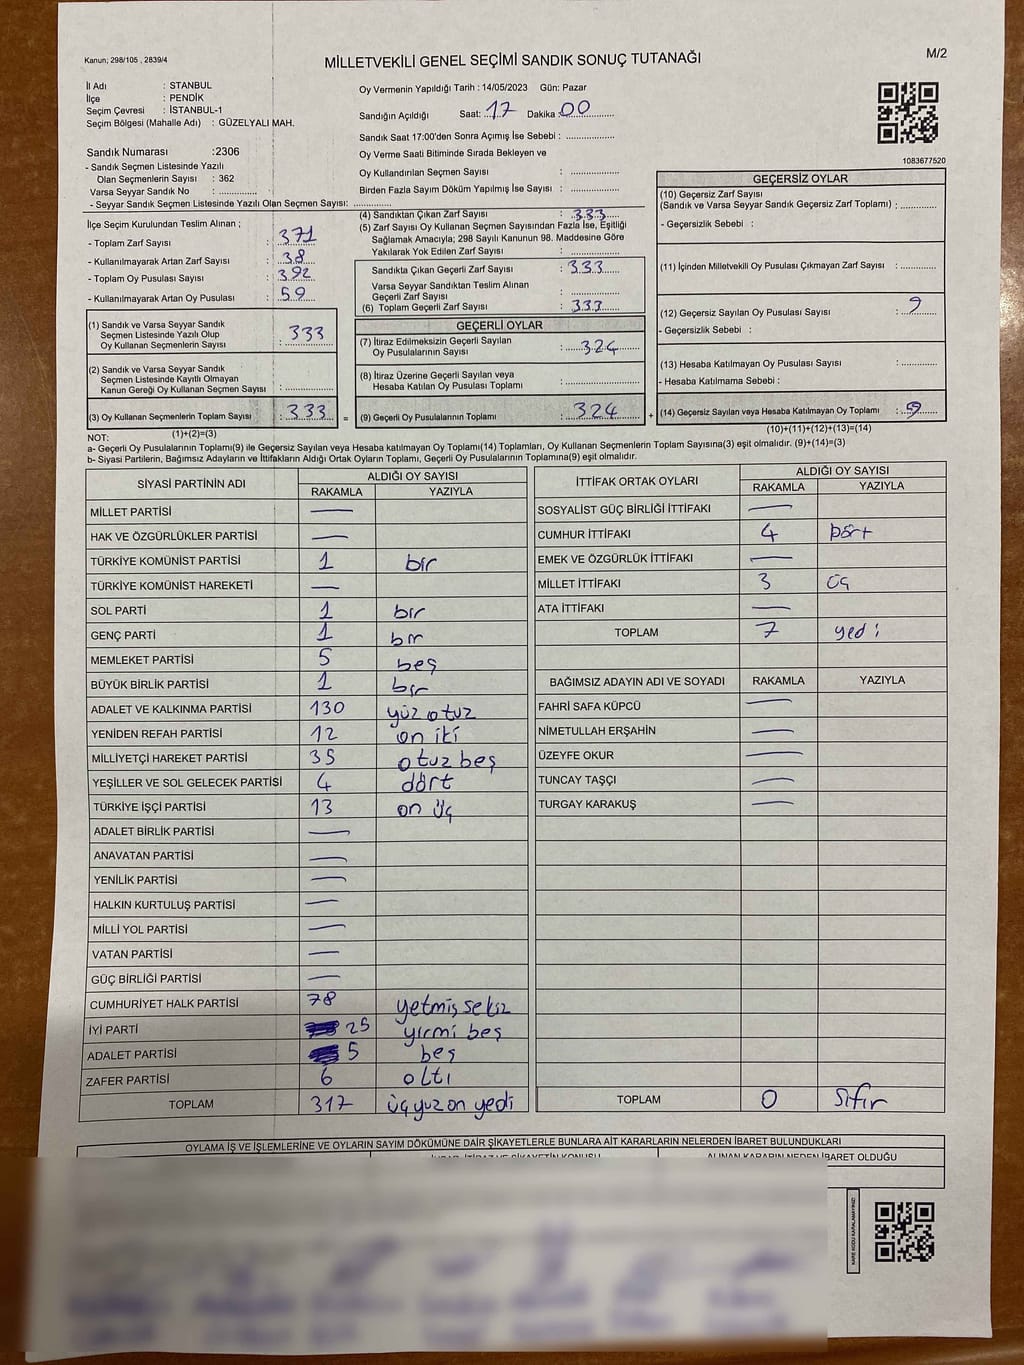 Kanun; 298/105 , 2839/4
MİLLETVEKİLİ GENEL SEÇİMİ SANDIK SONUÇ TUTANAĞI
M/2
İl Adı : STANBUL
İlçe : PENDİK
Seçim Çevresi : İSTANBUL-1
Seçim Bölgesi (Mahalle Adı) : GÜZELYALI MAH.
Sandık Numarası :2306
- Sandık Seçmen Listesinde Yazılı
Olan Seçmenlerin Sayısı : 362
Varsa Seyyar Sandık No : ..............
- Seyyar Sandık Seçmen Listesinde Yazılı Olan Seçmen Sayısı: ..............
Oy Vermenin Yapıldığı Tarih : 14/05/2023 Gün: Pazar
Sandığın Açıldığı Saat: 17 Dakika : 00
Sandık Saat 17:00'den Sonra Açımış İse Sebebi : ..............
Oy Verme Saati Bitiminde Sırada Bekleyen ve
Oy Kullandırılan Seçmen Sayısı : ..............
Birden Fazla Sayım Döküm Yapılmış İse Sayısı : ..............
1083677520
İlçe Seçim Kurulundan Teslim Alınan ;
- Toplam Zarf Sayısı : 371
- Kullanılmayarak Artan Zarf Sayısı : 38
- Toplam Oy Pusulası Sayısı : 392
- Kullanılmayarak Artan Oy Pusulası : 59
(1) Sandık ve Varsa Seyyar Sandık
Seçmen Listesinde Yazılı Olup
Oy Kullanan Seçmenlerin Sayısı : 333
(2) Sandık ve Varsa Seyyar Sandık
Seçmen Listesinde Kayıtlı Olmayan
Kanun Gereği Oy Kullanan Seçmen Sayısı : ..............
(3) Oy Kullanan Seçmenlerin Toplam Sayısı : 333 =
(1)+(2)=(3)
(4) Sandıktan Çıkan Zarf Sayısı : 333
(5) Zarf Sayısı Oy Kullanan Seçmen Sayısından Fazla İse, Eşitliği
Sağlamak Amacıyla; 298 Sayılı Kanunun 98. Maddesine Göre
Yakılarak Yok Edilen Zarf Sayısı : ..............
Sandıkta Çıkan Geçerli Zarf Sayısı : 333
Varsa Seyyar Sandıktan Teslim Alınan
Geçerli Zarf Sayısı : ..............
(6) Toplam Geçerli Zarf Sayısı : 333
GEÇERLİ OYLAR
(7) İtiraz Edilmeksizin Geçerli Sayılan
Oy Pusulalarının Sayısı : 324
(8) İtiraz Üzerine Geçerli Sayılan veya
Hesaba Katılan Oy Pusulası Toplamı : ..............
(9) Geçerli Oy Pusulalarının Toplamı : 324 +
GEÇERSİZ OYLAR
(10) Geçersiz Zarf Sayısı
(Sandık ve Varsa Seyyar Sandık Geçersiz Zarf Toplamı) : ..............
- Geçersizlik Sebebi :
(11) İçinden Milletvekili Oy Pusulası Çıkmayan Zarf Sayısı : ..............
(12) Geçersiz Sayılan Oy Pusulası Sayısı : 9
- Geçersizlik Sebebi :
(13) Hesaba Katılmayan Oy Pusulası Sayısı : ..............
- Hesaba Katılmama Sebebi :
(14) Geçersiz Sayılan veya Hesaba Katılmayan Oy Toplamı : 9
(10)+(11)+(12)+(13)=(14)
NOT:
a- Geçerli Oy Pusulalarının Toplamı(9) ile Geçersiz Sayılan veya Hesaba katılmayan Oy Toplamı(14) Toplamları, Oy Kullanan Seçmenlerin Toplam Sayısına(3) eşit olmalıdır. (9)+(14)=(3)
b- Siyasi Partilerin, Bağımsız Adayların ve İttifakların Aldığı Ortak Oyların Toplamı, Geçerli Oy Pusulalarının Toplamına(9) eşit olmalıdır.
SİYASİ PARTİNİN ADI ALDIĞI OY SAYISI
RAKAMLA YAZIYLA
MİLLET PARTİSİ —
HAK VE ÖZGÜRLÜKLER PARTİSİ —
TÜRKİYE KOMÜNİST PARTİSİ 1 bir
TÜRKİYE KOMÜNİST HAREKETİ —
SOL PARTİ 1 bir
GENÇ PARTİ 1 bir
MEMLEKET PARTİSİ 5 beş
BÜYÜK BİRLİK PARTİSİ 1 bir
ADALET VE KALKINMA PARTİSİ 130 yüz otuz
YENİDEN REFAH PARTİSİ 12 on iki
MİLLİYETÇİ HAREKET PARTİSİ 35 otuz beş
YEŞİLLER VE SOL GELECEK PARTİSİ 4 dört
TÜRKİYE İŞÇİ PARTİSİ 13 on üç
ADALET BİRLİK PARTİSİ —
ANAVATAN PARTİSİ —
YENİLİK PARTİSİ —
HALKIN KURTULUŞ PARTİSİ —
MİLLİ YOL PARTİSİ —
VATAN PARTİSİ —
GÜÇ BİRLİĞİ PARTİSİ —
CUMHURİYET HALK PARTİSİ 78 yetmiş sekiz
İYİ PARTİ 25 yirmi beş
ADALET PARTİSİ 5 beş
ZAFER PARTİSİ 6 altı
TOPLAM 317 üçyüz on yedi
İTTİFAK ORTAK OYLARI ALDIĞI OY SAYISI
RAKAMLA YAZIYLA
SOSYALİST GÜÇ BİRLİĞİ İTTİFAKI —
CUMHUR İTTİFAKI 4 dört
EMEK VE ÖZGÜRLÜK İTTİFAKI —
MİLLET İTTİFAKI 3 üç
ATA İTTİFAKI —
TOPLAM 7 yedi
BAĞIMSIZ ADAYIN ADI VE SOYADI RAKAMLA YAZIYLA
FAHRİ SAFA KÜPCÜ —
NİMETULLAH ERŞAHİN —
ÜZEYFE OKUR —
TUNCAY TAŞÇI —
TURGAY KARAKUŞ —
TOPLAM 0 sıfır
OYLAMA İŞ VE İŞLEMLERİNE VE OYLARIN SAYIM DÖKÜMÜNE DAİR ŞİKAYETLERLE BUNLARA AİT KARARLARIN NELERDEN İBARET BULUNDUKLARI
ALINAN KARARIN NEDEN İBARET OLDUĞU